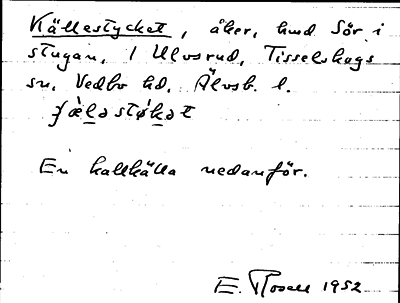 Källestycket, åker, hmd Sör i
stugan, 1 Ulvsrud, Tisselskogs
sn, Vedbo hd, Älvsb. l.
En kallkälla nedanför.
E. Rosell 1952